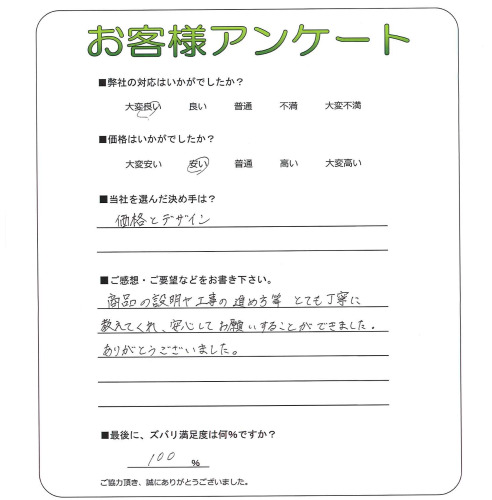 お客様アンケート
■弊社の対応はいかがでしたか?
大変良い 良い 普通 不満 大変不満
■価格はいかがでしたか?
大変安い 安い 普通 高い 大変高い
■当社を選んだ決め手は?
価格とデザイン
■ご感想・ご要望などをお書き下さい。
商品の説明や工事の進め方等 とても丁寧に
教えてくれ、安心してお願いすることができました。
ありがとうございました。
■最後に、ズバリ満足度は何%ですか?
100 %
ご協力頂き、誠にありがとうございました。